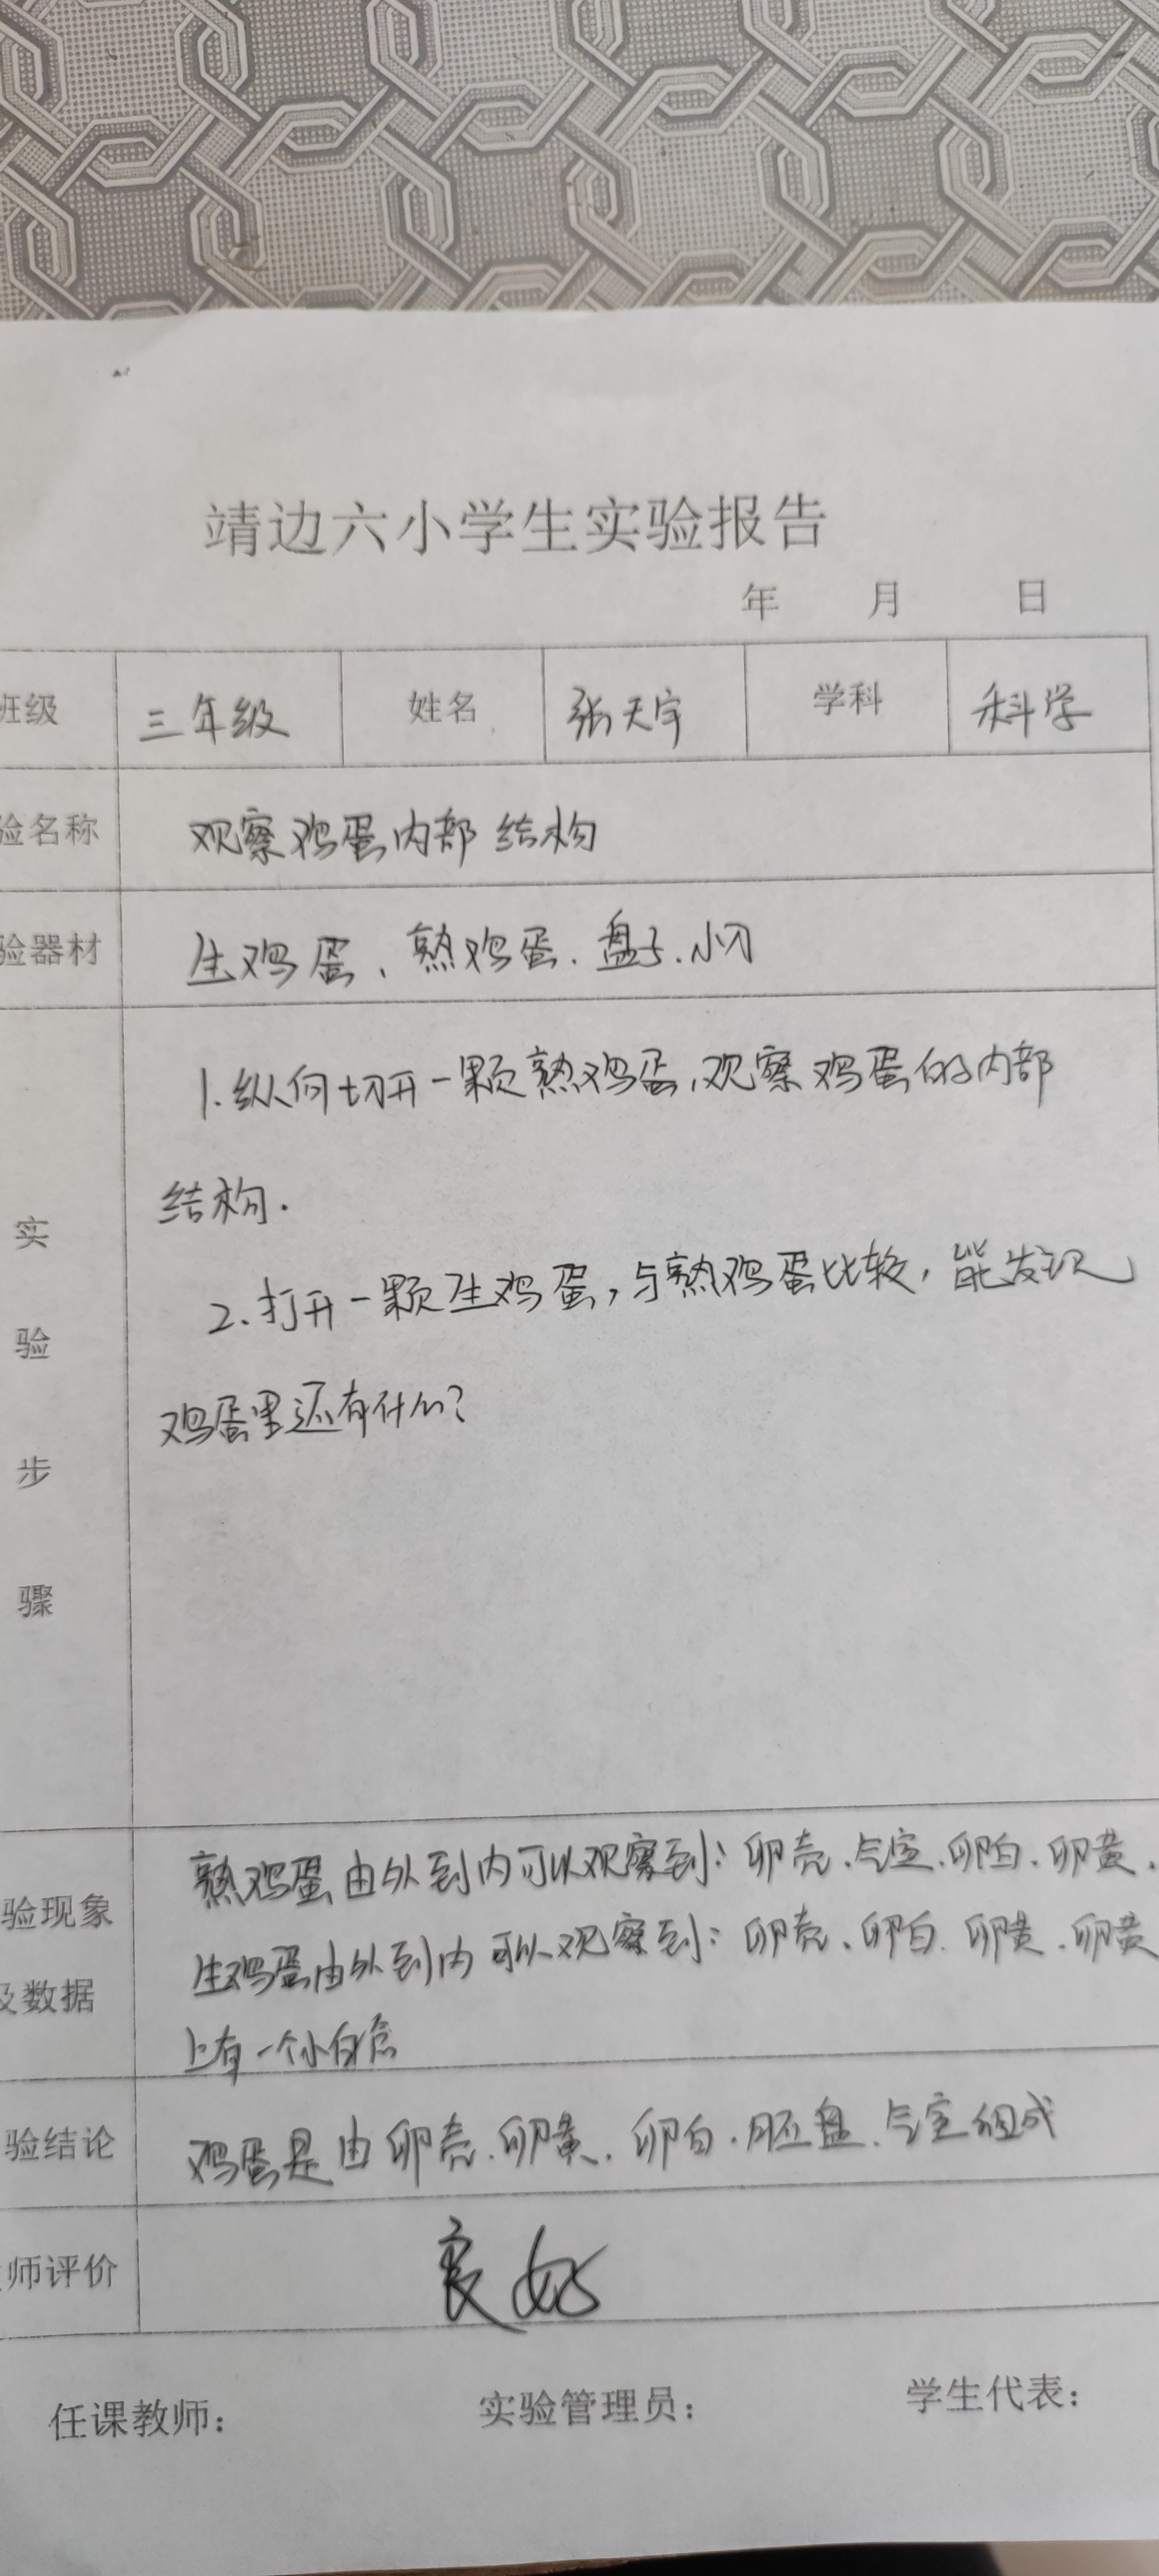 靖边六小学生实验报告
年 月 日
班级 三年级 姓名 张天宇 学科 科学
验名称 观察鸡蛋内部结构
验器材 生鸡蛋、熟鸡蛋、盘子、小刀
实验步骤
1.纵向切开一颗熟鸡蛋,观察鸡蛋的内部
结构.
2.打开一颗生鸡蛋,与熟鸡蛋比较,能发现
鸡蛋里还有什么?
验现象
及数据
熟鸡蛋由外到内可以观察到:卵壳、气室、卵白、卵黄.
生鸡蛋由外到内可以观察到:卵壳、卵白、卵黄、卵黄
上有一个小白点
验结论 鸡蛋是由卵壳、卵黄、卵白、胚盘、气室组成
师评价 良好
任课教师: 实验管理员: 学生代表: